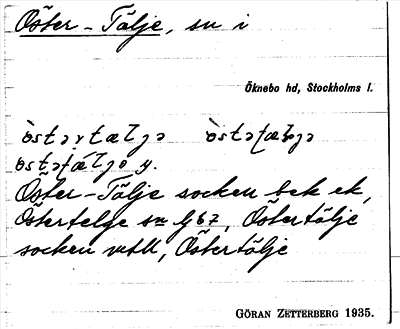 Öster-Tälje, sn i
Öknebo hd, Stockholms l.
ò̀stərtæljə ò̀stəʈælje
östəʈæ´ljə y.
Öster-Tälje socken bek ek,
Östertelge sn Gb7, Östertälje
socken vtsll, Östertälje
GÖRAN ZETTERBERG 1935.